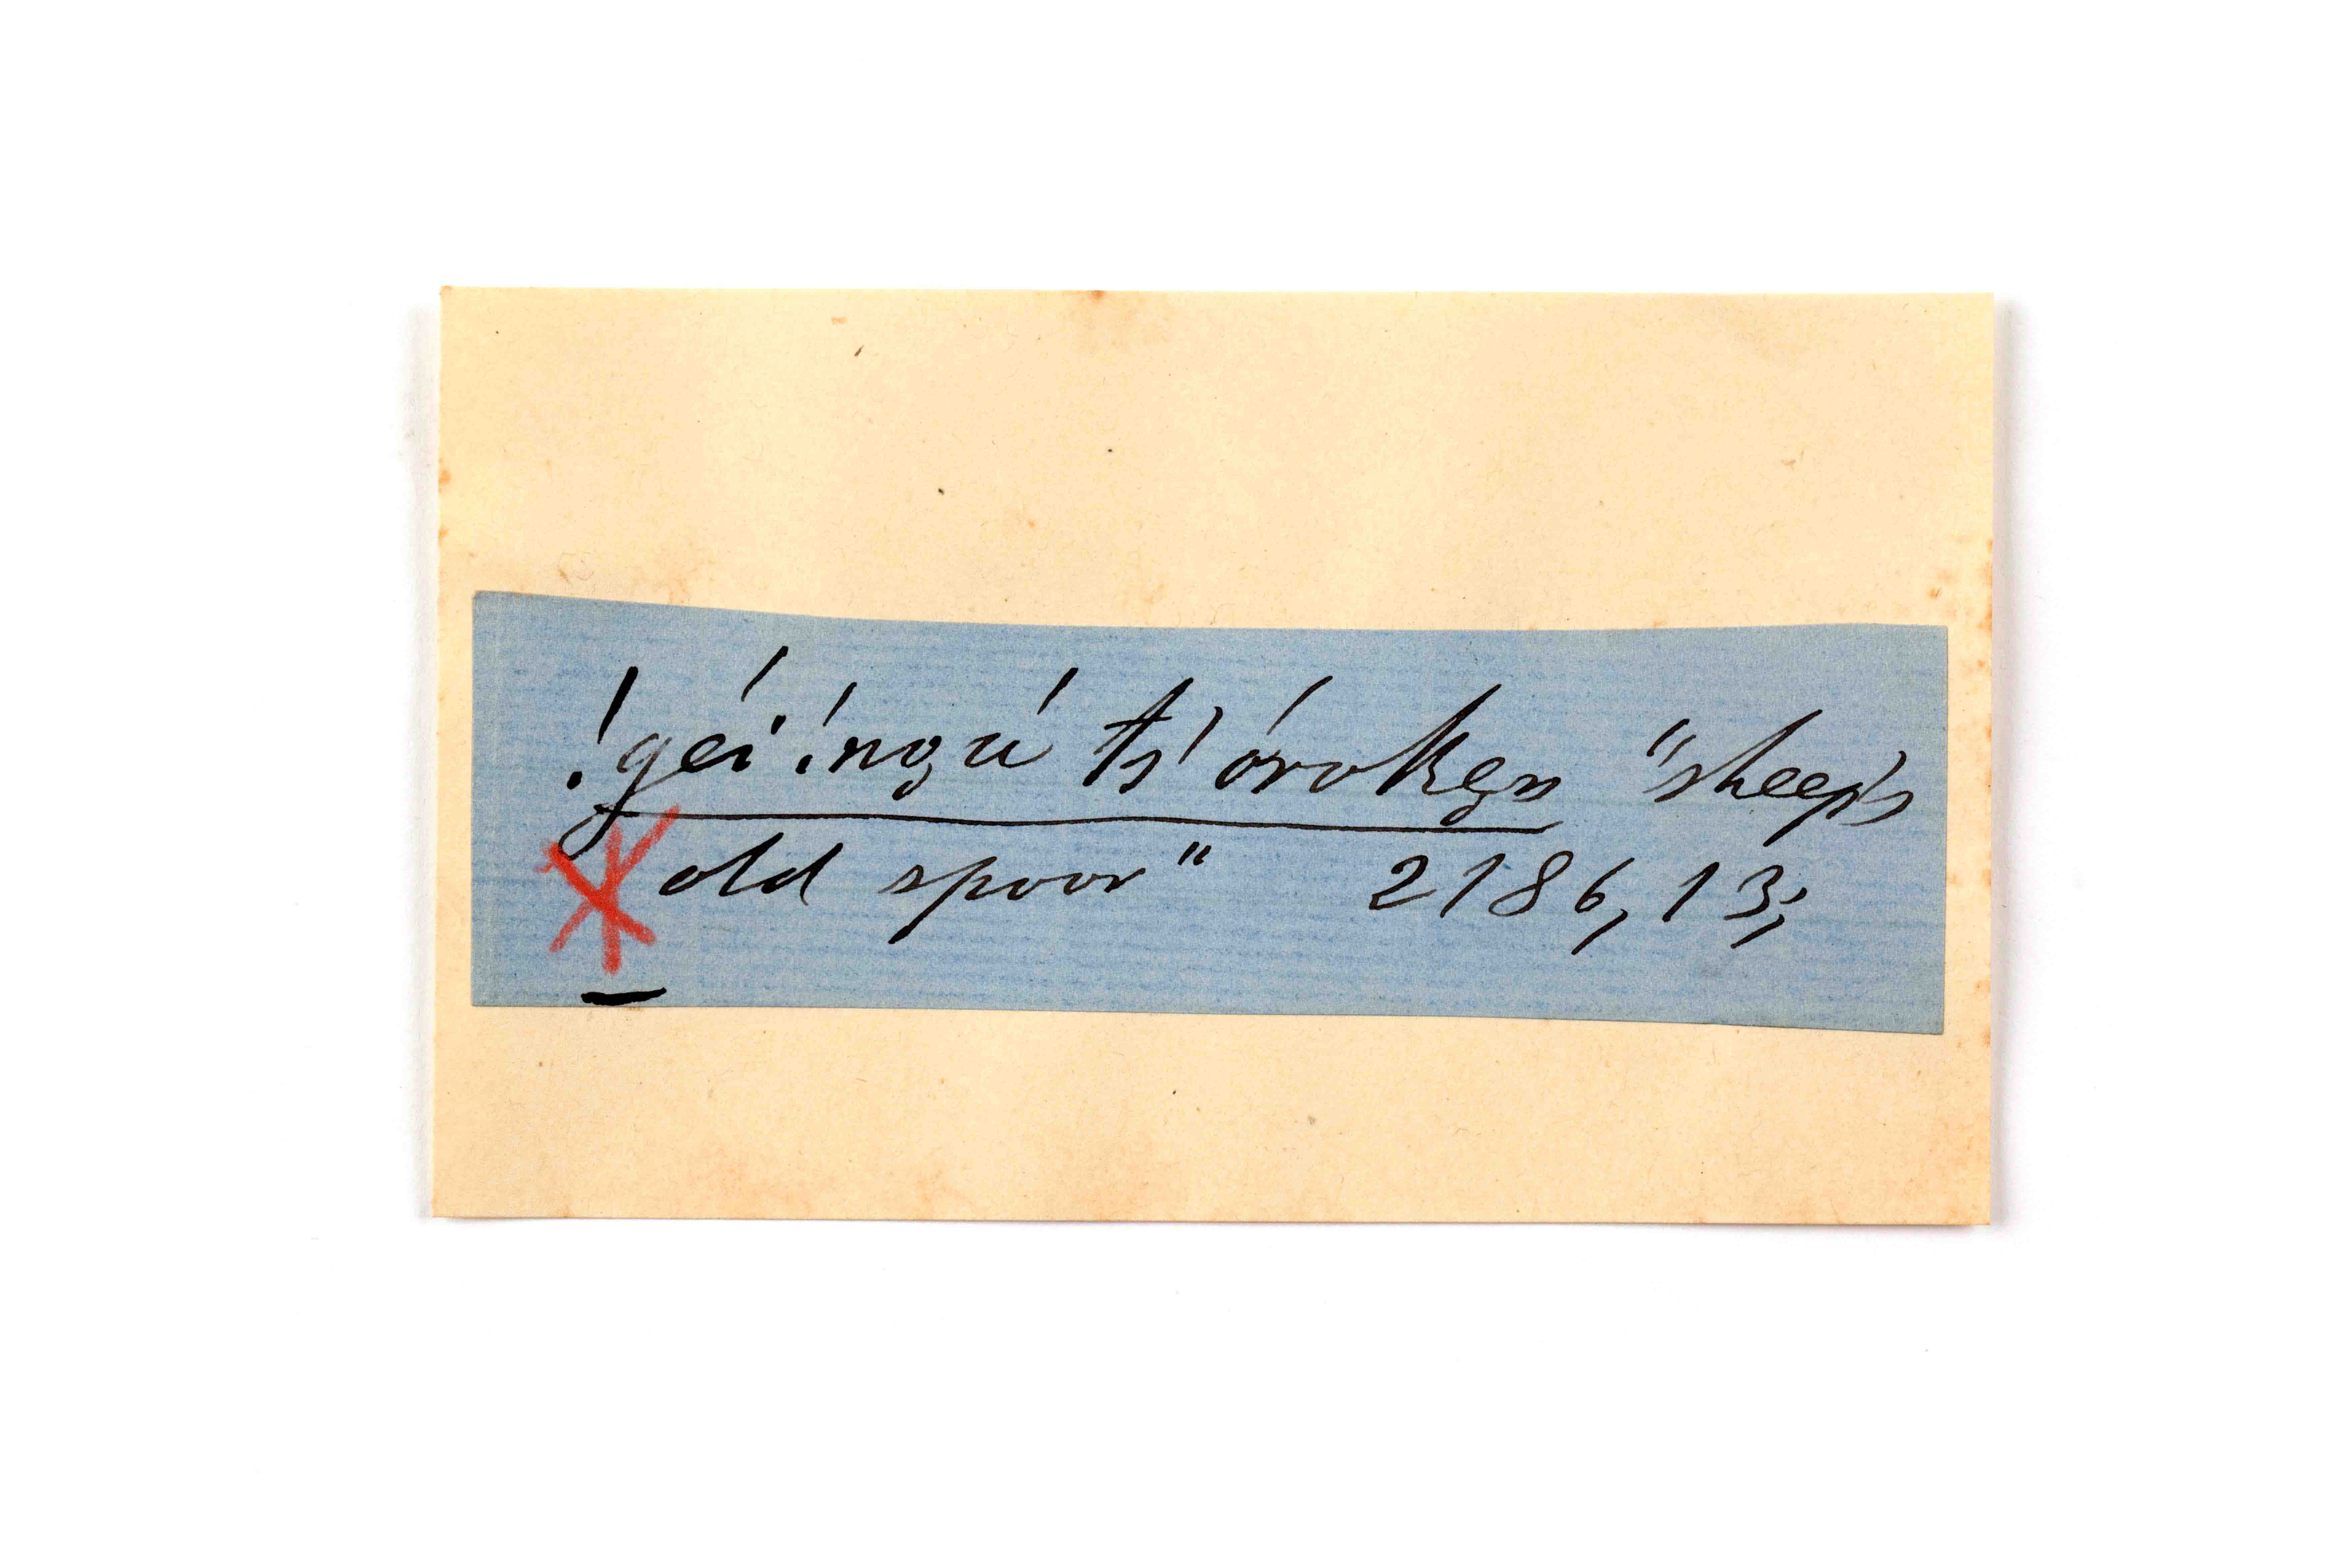 !géi !nṉu ts'óroken "sheep's
old spoor" 2186, 13;